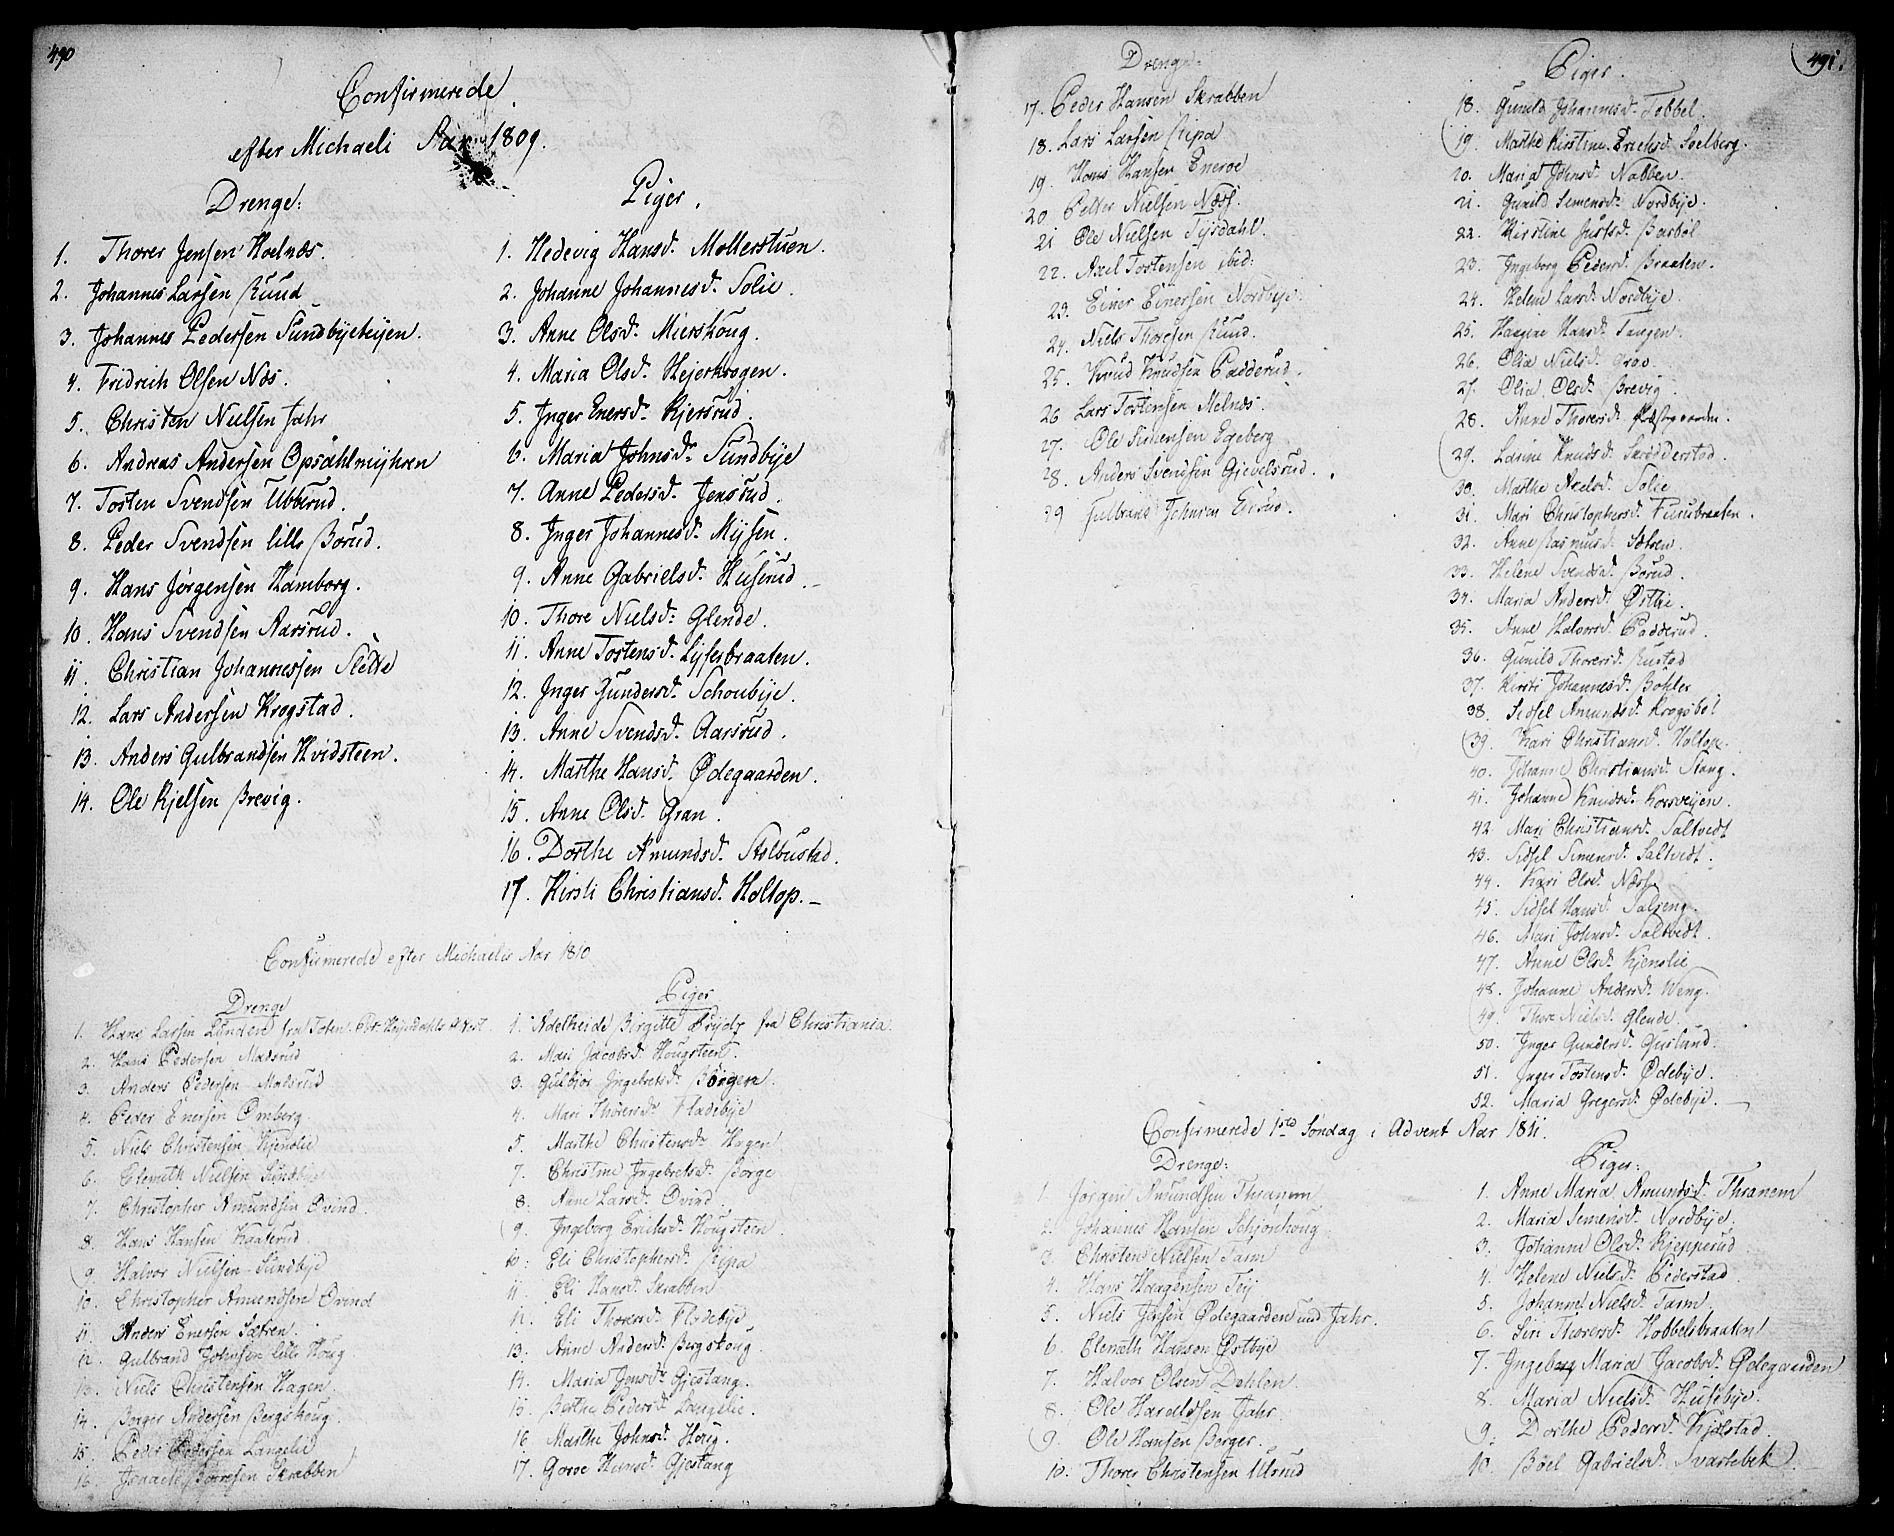 490
Confirmerede
efter Michaeli Aar 1809.
Drenge:
1. Thorer Jensen Hoelnæs.
2. Johannes Larsen Ruud
3. Johannes Pedersen Sundbyeteijen.
4. Fridrich Olsen Næs.
5. Christen Nielsen Jahr
6. Andreas Andersen Opsahlmyhren
7. Tosten Svendsen Ubberud.
8. Peder Svendsen lille Borud.
9. Hans Jørgensen Hamborg.
10. Hans Svendsen Aarsrud.
11. Christian Johannessen Slette
12. Lars Andersen Krogstad.
13. Anders Gulbrandsen Hvidsteen.
14. Ole Kjelsen Brevig.
Piger.
1. Hedevig Hansd. Mollerstuen.
2. Johanne Johannesd. Solie.
3. Anne Olsd. Mierskoug.
4. Maria Olsd. Hejerkrogen.
5. Inger Enersd. Kjersrud.
6. Maria Johnsd. Sundbye
7. Anne Pedersd. Jensrud.
8. Inger Johannesd. Mysen.
9. Anne Gabrielsd. Huserud.
10. Thore Nielsd. Glende.
11. Anne Tostensd. Lyserbraaten.
12. Inger Gundersd. Schoubye.
13. Anne Svendsd. Aarsrud.
14. Marthe Hansd. Ødegaarden.
15. Anne Olsd. Gran.
16. Dorthe Amundsd. Stalbustad.
17. Kirsti Christiansd. Holtop.
Confirmerede efter Michaelis Aar 1810.
Drenge
1. Hans Larsen Lunden fra Toten
2. Hans Pedersen Madsrud
3. Anders Pedersen Madsrud
4. Peder Enersen Omberg.
5. Niels Christensen Kjenslie
6. Clemeth Nielsen Sundbye
7. Christopher Amundsen Øvind.
8. Hans Hansen Kaaterud.
9. Halvor Nielsen Sundbye
10. Christopher Amundsen Øvind
11. Anders Enersen Sætren.
12. Gulbrand Johnsen lille Houg
13. Niels Christensen Hagen
14. Borger Andersen Bergskoug.
15. Peder Pedersen Langelie
16. Skrabben
Piger
1. Adelheide Birgitte Prydz fra Christiania.
2. Mari Jacobsd. Hougsteen.
3. Gulbior Ingebretsd. Borgen.
4. Mari Thorersd. Fladebye
5. Marthe Christensd. Hagen
7. Christine Ingebretsd. Borge
8. Anne Larsd. Øvind.
9. Ingeborg Erichsd. Hougsteen
10. Eli Christophersd. Ripa
11. Eli Hansd. Skrabben
12. Eli Thorersd. Fladebye
13. Anne Andersd. Bergskoug.
14. Maria Jensd. Gjestang.
15. Berthe Pedersd. Langelie.
16. Marthe Johnsd. Houg.
17. Goroe Hansd. Gjestang
491.
Drenge.
17. Peder Hansen Skrabben
18. Lars Larsen Ripa
19. Hans Hansen Eneroe
20 Petter Nielsen Næss.
21 Ole Nielsen Tysdahl.
22. Axel Tostensen ibid:
23. Einer Einersen Nordbye.
24. Niels Thoresen Ruud.
25. Knud Knudsen Padderud.
26 Lars Tostensen Melnæs.
27. Ole Simensen Egeberg
28. Anders Svendsen Gjevelsrud.
29 Gulbrand Johnsen Eerud.
Piger.
18. Gunild Johannesd. Tobbel.
19. Marthe Kirstine Erichsd. Soelberg.
20. Maria Johnsd. Nabben.
21. Gunild Simensd. Nordbye.
22. Kirstine Justsd. Barbøl
23. Ingeborg Pedersd. Braaten.
24. Helene Larsd. Nordbye
25. Hansd. Tangen.
26. Olia Nielsd. Grav.
27. Olia Olsd. Brevig.
28. Anne Thorersd. Præstgaarden.
29. Larine Knudsd. Skrødderstad.
30. Marthe Axelsd. Solie
31. Mari Christophersd. Furubraaten.
32. Anne Rasmusd. Sætren.
33. Helene Svendsd. Borud.
34. Maria Andersd. Østbie.
35. Anne Halvorsd. Padderud.
36. Gunild Thorersd. Rustad
37. Kirsti Johannesd. Bohler
38. Sidsel Amundsd. Krogsbøl
39. Kari Christiansd. Holtop.
40. Johanne Christiansd. Stang.
41. Johanne Knudsd. Korsveijen.
42. Mari Christiansd. Saltvedt
43. Sidsel Simensd. Saltvedt.
44. Kari Olsd. Næss
45. Sidsel Hansd. Solseng.
46. Mari Johnsd. Saltvedt.
47. Anne Olsd. Kjenslie
48. Johanne Andersd. Weng.
49. Thore Nielsd. Glende.
50. Inger Gundersd. Qusland.
51. Inger Tostensd. Ødebye.
52. Maria Gregersd. Ødebye.
Confirmerede 1ste Søndag i Advent Aar 1811.
Drenge:
1. Jørgen Amundsen Thranem
2. Johannes Hansen Schjønhoug
3. Christen Nielsen Tarm
4. Hans Haagensen Teij
5. Niels Jensen Ødegaarden und Jahr.
6. Clemeth Hansen Østbye
7. Halvor Olsen Dahlen.
8. Ole Haraldsen Jahr.
9. Ole Hansen Berger.
10. Thorer Christensen Ulsrud
Piger:
1. Anne Maria Amundsd. Thranem
2. Maria Simensd. Nordbye.
3. Johanne Olsd. Kjepperud
4. Helene Nielsd. Pederstad.
5. Johanne Nielsd. Tarm.
6. Siri Thorersd. Hobbelsbraaten
7. Ingeborg Maria Jacobsd. Ødegaarden
8. Maria Nielsd. Husebye.
9. Dorthe Pedersd. Kjølstad.
10. Boel Gabrielsd. Svartebek.